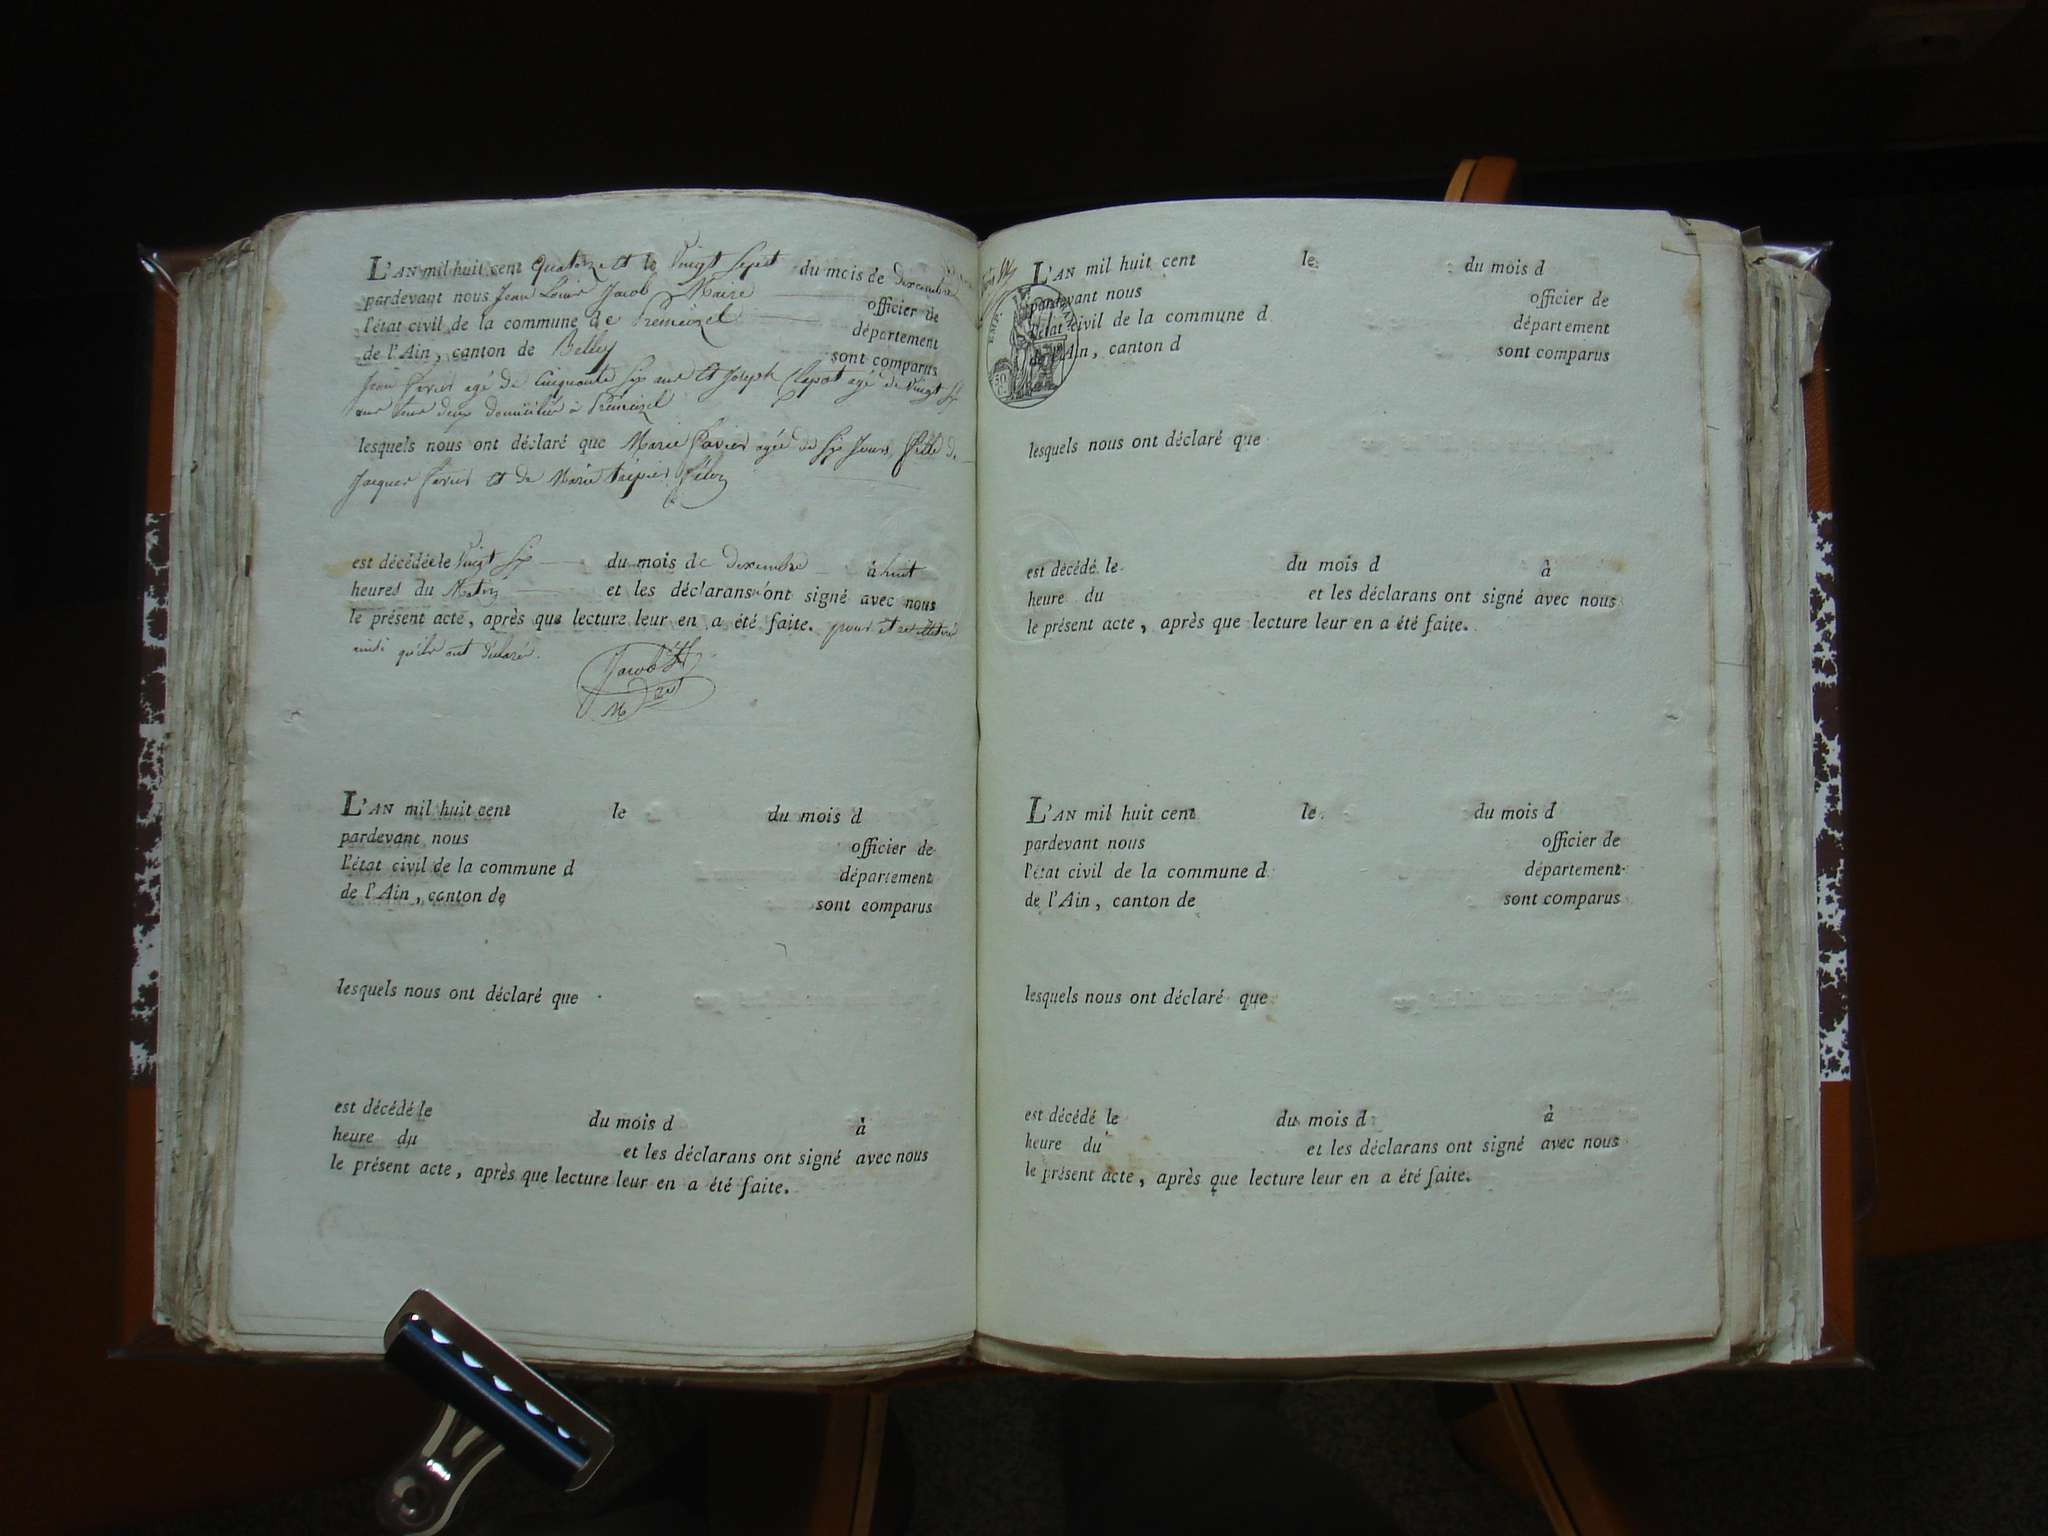 L'AN mil huit cent quatorze et le vingt sept du mois de decembre
pardevant nous Jean Louis Jacob Maire officier de
l'état civil de la commune de Prémeizel département
de l'Ain, canton de Belley sont comparus
Jean agé de Cinquante Six ans et Joseph agé de vingt
ans tous deux domiciliés à Prémeizel
lesquels nous ont déclaré que Marie agée de Six Jours, fille d.
Jacques et de Marie
est décédée le vingt Six du mois de decembre à huit
heures du Matin et les déclarans ont signé avec nous
le présent acte, après que lecture leur en a été faite. pour et
ainsi qu'ils ont déclaré.
Jacob
L'AN mil huit cent le du mois d
pardevant nous officier de
l'état civil de la commune d département
de l'Ain, canton de sont comparus
lesquels nous ont déclaré que
est décédé le du mois d à
heure du et les déclarans ont signé avec nous
le présent acte, après que lecture leur en a été faite.
L'AN mil huit cent le du mois d
pardevant nous officier de
l'état civil de la commune d département
de l'Ain, canton d sont comparus
EMP.
50
C.
lesquels nous ont déclaré que
est décédé le du mois d à
heure du et les déclarans ont signé avec nous
le présent acte, après que lecture leur en a été faite.
L'AN mil huit cent le du mois d
pardevant nous officier de
l'état civil de la commune d département
de l'Ain, canton de sont comparus
lesquels nous ont déclaré que
est décédé le du mois d à
heure du et les déclarans ont signé avec nous
le présent acte, après que lecture leur en a été faite.